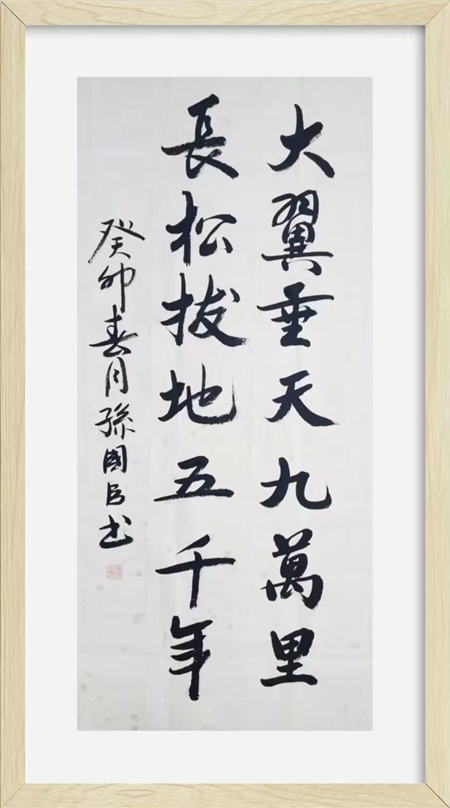 大翼垂天九萬里
長松拔地五千年
癸卯春月孫國居书